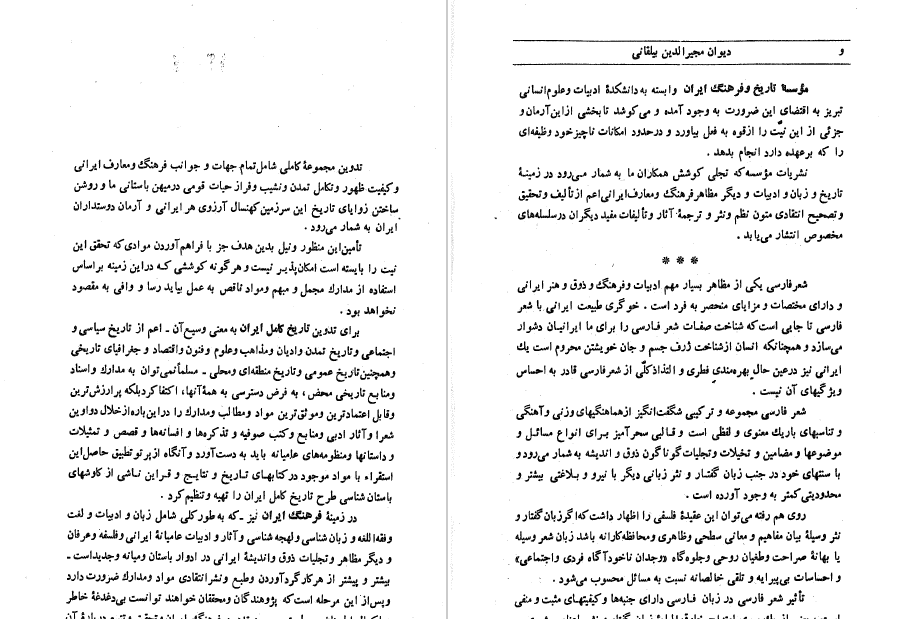 تدوین مجموعهٔ کاملی شامل تمام جهات و جوانب فرهنگ ومعارف ایرانی
وکیفیت ظهور وتکامل تمدن ونشیب وفراز حیات قومی درمیهن باستانی ما و روشن
ساختن زوایای تاریخ این سرزمین کهنسال آرزوی هر ایرانی و آرمان دوستداران
ایران به شمار می‌رود .
تأمین این منظور ونیل بدین هدف جز با فراهم آوردن موادی که تحقق این
نیت را بایسته است امکان‌پذیر نیست و هر گونه کوششی که دراین زمینه براساس
استفاده از مدارك مجمل و مبهم ومواد ناقص به عمل بیاید رسا و وافی به مقصود
نخواهد بود .
برای تدوین تاریخ کامل ایران به معنی وسیع آن ـ اعم از تاریخ سیاسی و
اجتماعی وتاریخ تمدن وادیان ومذاهب وعلوم وفنون واقتصاد و جغرافیای تاریخی
وهمچنین تاریخ عمومی وتاریخ منطقه‌ای ومحلی ـ مسلماً نمی‌توان به مدارك واسناد
ومنابع تاریخی محض، به فرض دسترسی به همهٔ آنها، اکتفا کرد بلکه پرارزش‌ترین
وقابل اعتمادترین وموثق‌ترین مواد ومطالب ومدارك را دراین باره ازخلال دواوین
شعرا وآثار ادبی ومنابع وکتب صوفیه و تذکره‌ها و افسانه‌ها و قصص و تمثیلات
و داستانها ومنظومه‌های عامیانه باید به دست‌آورد وآنگاه از پرتو تطبیق حاصل این
استقراء با مواد موجود درکتابهای تاریخ و نتایج و قراین ناشی از کاوشهای
باستان شناسی طرح تاریخ کامل ایران را تهیه وتنظیم کرد .
در زمینهٔ فرهنگ ایران نیز ـ که به طور کلی شامل زبان و ادبیات و لغت
وفقه‌اللغه و زبان شناسی و لهجه شناسی و آثار و ادبیات عامیانهٔ ایرانی وفلسفه وعرفان
و دیگر مظاهر وتجلیات ذوق واندیشهٔ ایرانی در ادوار باستان ومیانه وجدیداست ـ
بیشتر و پیشتر از هرکار گردآوردن وطبع ونشرانتقادی مواد ومدارك ضرورت دارد
وپس‌از این مرحله است که پژوهندگان ومحققان خواهند توانست بی‌دغدغهٔ خاطر
و
دیوان مجیرالدین بیلقانی
مؤسسهٔ تاریخ وفرهنگ ایران وابسته به دانشکدهٔ ادبیات وعلوم انسانی
تبریز به اقتضای این ضرورت به وجود آمده و می‌کوشد تا بخشی از این آرمان و
جزئی از این نیّت را ازقوه به فعل بیاورد و درحدود امکانات ناچیز خود وظیفه‌ای
را که برعهده دارد انجام بدهد .
نشریات مؤسسه که تجلی کوشش همکاران ما به شمار می‌رود در زمینهٔ
تاریخ و زبان و ادبیات و دیگر مظاهر فرهنگ ومعارف ایرانی اعم از تألیف وتحقیق
وتصحیح انتقادی متون نظم ونثر و ترجمهٔ آثار وتألیفات مفید دیگران درسلسله‌های
مخصوص انتشار می‌یابد .
* * *
شعر فارسی یکی از مظاهر بسیار مهم ادبیات وفرهنگ و ذوق و هنر ایرانی
و دارای مختصات و مزایای منحصر به فرد است . خوگری طبیعت ایرانی با شعر
فارسی تا جایی است که شناخت صفات شعر فارسی را برای ما ایرانیان دشوار
می‌سازد و همچنانکه انسان ازشناخت ژرف جسم و جان خویشتن محروم است یك
ایرانی نیز درعین حال بهره‌مندی فطری و التذاذ کلّی از شعر فارسی قادر به احساس
ویژگیهای آن نیست .
شعر فارسی مجموعه و ترکیبی شگفت‌انگیز از هماهنگیهای وزنی وآهنگی
و تناسبهای باریك معنوی و لفظی است و قالبی سحرآمیز برای انواع مسائل و
موضوعها و مضامین و تخیلات وتجلیات گوناگون ذوق و اندیشه به شمار می‌رود و
با سنتهای خود در جنب زبان گفتار و نثر زبانی دیگر با نیرو و بلاغتی بیشتر و
محدودیتی کمتر به وجود آورده است .
روی هم رفته می‌توان این عقیدهٔ فلسفی را اظهار داشت که اگر زبان گفتار و
نثر وسیلهٔ بیان مفاهیم و معانی سطحی وظاهری ومحافظه‌کارانه باشد زبان شعر وسیله
یا بهانهٔ صراحت وطغیان روحی وجلوه‌گاه «وجدان ناخودآگاه فردی واجتماعی»
و احساسات بی‌پیرایه و تلقی خالصانه نسبت به مسائل محسوب می‌شود .
تأثیر شعر فارسی در زبان فارسی دارای جنبه‌ها وکیفیتهای مثبت و منفی